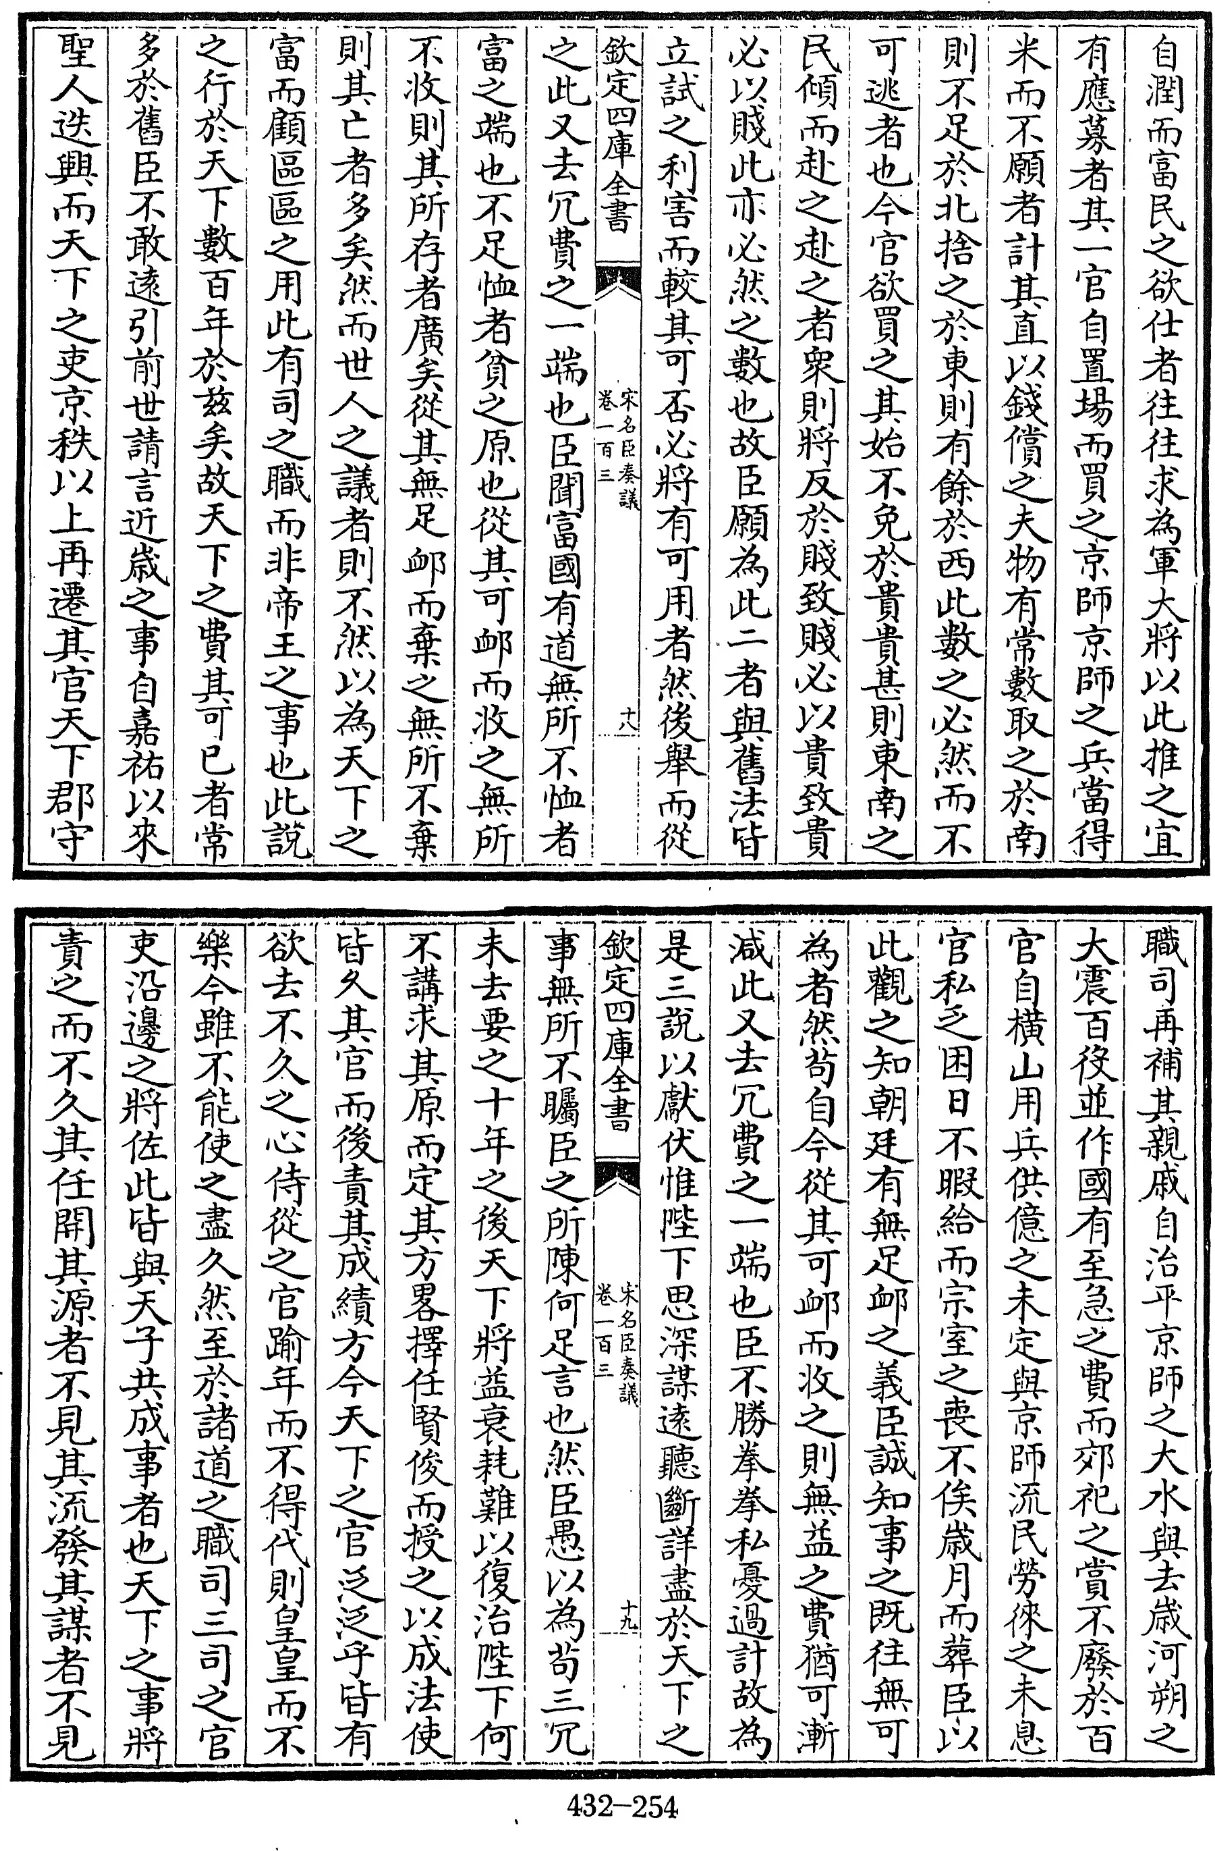 自潤而富民之欲仕者往往求為軍大將以此推之宜
有應募者其一官自置場而買之京師京師之兵當得
米而不願者計其直以錢償之夫物有常數取之於南
則不足於北捨之於東則有餘於西此數之必然而不
可逃者也今官欲買之其始不免於貴貴甚則東南之
民傾而赴之赴之者衆則將反於賤致賤必以貴致貴
必以賤此亦必然之數也故臣願為此二者與舊法皆
立試之利害而較其可否必將有可用者然後舉而從
欽定四庫全書
宋名臣奏議
卷一百三
十八
之此又去冗費之一端也臣聞富國有道無所不恤者
富之端也不足恤者貧之原也從其可䘏而收之無所
不收則其所存者廣矣從其無足䘏而棄之無所不棄
則其亡者多矣然而世人之議者則不然以為天下之
富而顧區區之用此有司之職而非帝王之事也此說
之行於天下數百年於兹矣故天下之費其可已者常
多於舊臣不敢逺引前世請言近歲之事自嘉祐以來
聖人迭興而天下之吏京秩以上再遷其官天下郡守
職司再補其親戚自治平京師之大水與去歲河朔之
大震百役並作國有至急之費而郊祀之賞不廢於百
官自横山用兵供億之未定與京師流民勞徠之未息
官私乏困日不暇給而宗室之喪不俟歲月而葬臣以
此觀之知朝廷有無足䘏之義臣誠知事之既往無可
為者然茍自今從其可䘏而收之則無益之費猶可漸
減此又去冗費之一端也臣不勝拳拳私憂過計故為
是三說以獻伏惟陛下思深謀逺聽斷詳盡於天下之
欽定四庫全書
宋名臣奏議
卷一百三
十九
事無所不矚臣之所陳何足言也然臣愚以為茍三冗
未去要之十年之後天下將益衰耗難以復治陛下何
不講求其原而定其方畧擇任賢俊而授之以成法使
皆久其官而後責其成績方今天下之官泛泛乎皆有
欲去不久之心侍從之官踰年而不得代則皇皇而不
樂今雖不能使之盡久然至於諸道之職司三司之官
吏沿邊之將佐此皆與天子共成事者也天下之事將
責之而不久其任開其源者不見其流發其謀者不見
432-254